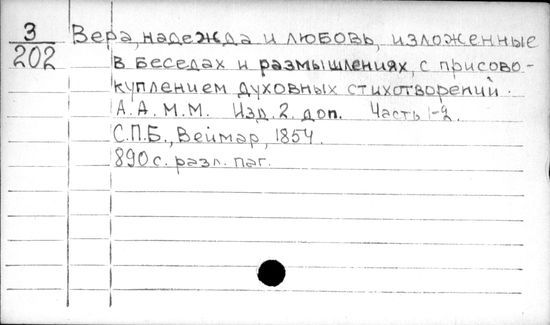 3
202
Вера, надежда и любовь, изложенные
в беседах и размышлениях, с присово-
куплением духовных стихотворений.
А. А. М. М. Изд. 2. доп. Часть 1-2.
С.П.Б., Веймар, 1854.
890 с. разл. паг.